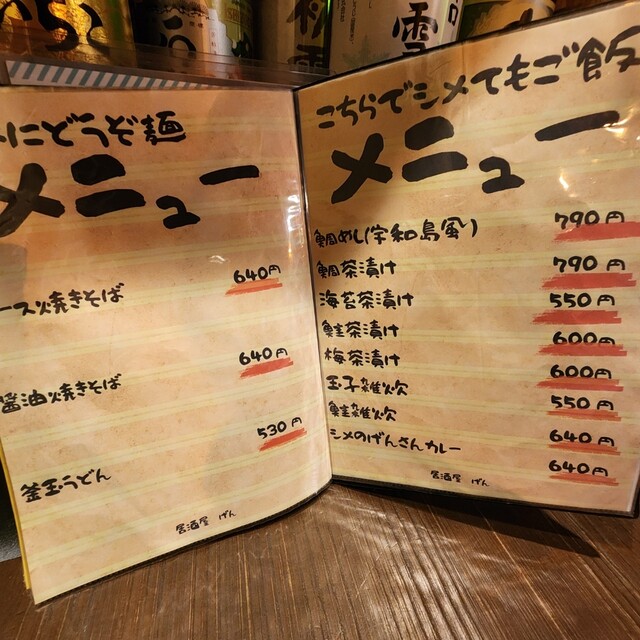 にどうぞ麺
メニュー
ース焼きそば 640円
醤油焼きそば 640円
釜玉うどん 530円
居酒屋 げん
こちらでシメてもご飯
メニュー
鯛めし(宇和島風) 790円
鯛茶漬け 790円
海苔茶漬け 550円
鮭茶漬け 600円
梅茶漬け 600円
玉子雑炊 550円
鮭雑炊 640円
シメのげんさんカレー 640円
居酒屋 げん
雪